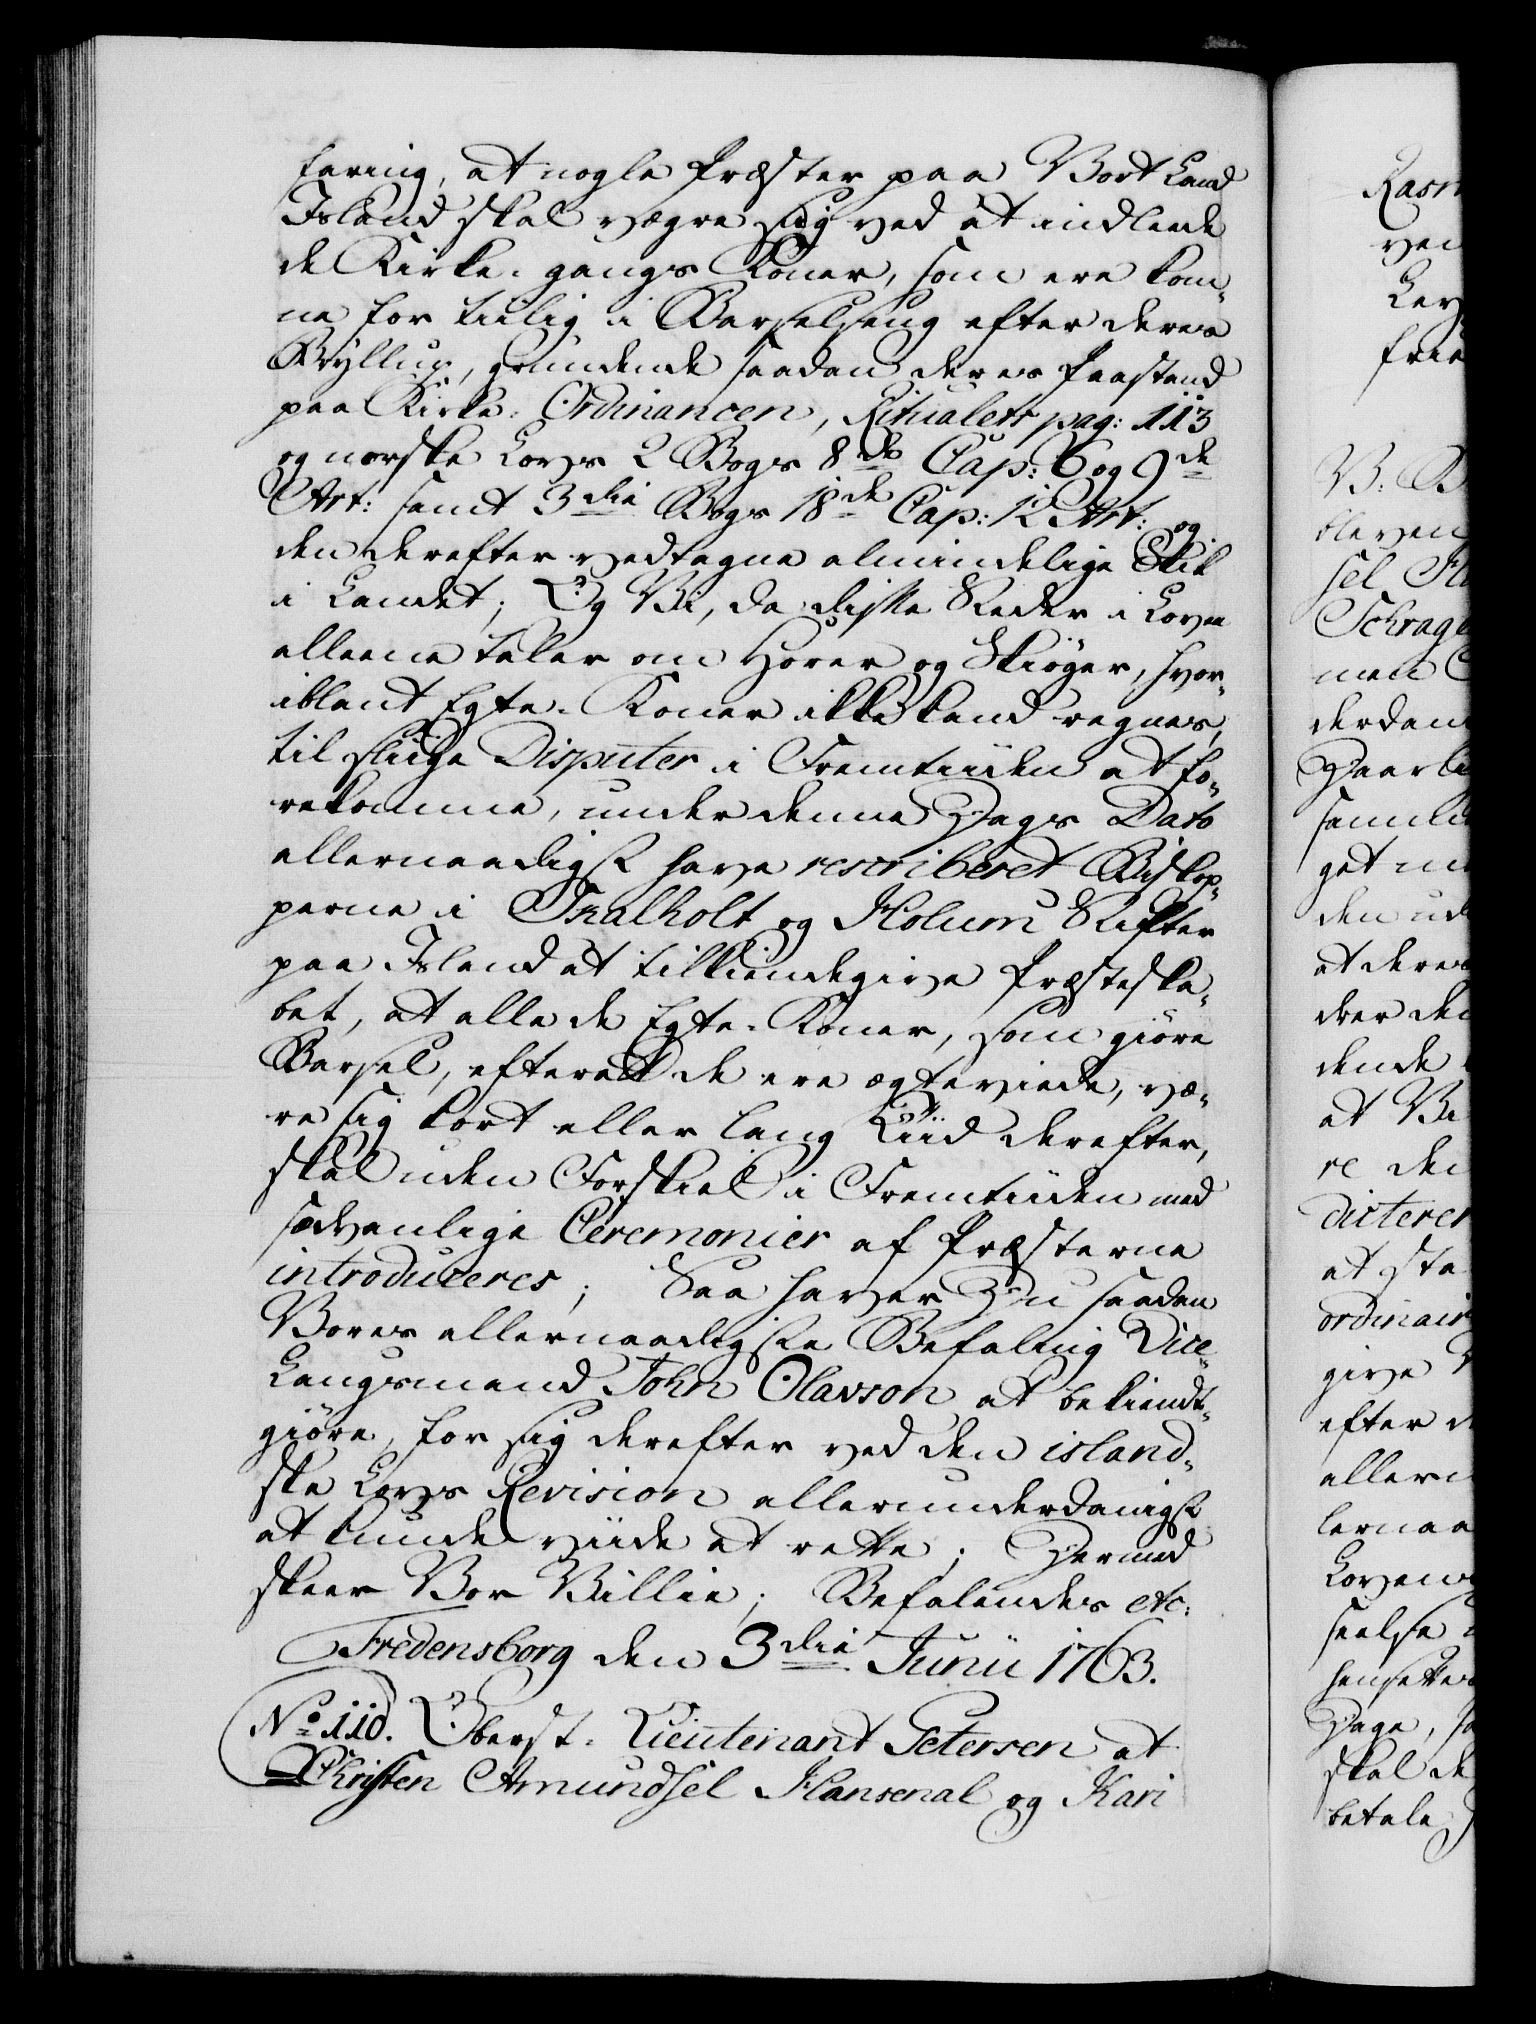 faring, at nogle Præster paa Vort Land
Island skal vægre sig ved at indleede
de Kirke-gangs Koner, som ere kom-
ne for tiilig i Barselseng efter deres
Bryllup, grundende saadan deres Paastand
paa Kirke-Ordinancen, Ritualets pag: 113
og norske Lovs 2 Bogs 8de Cap: 6 og 9de
Art: samt 3die Bogs 18de Cap: 12 Art: og
den derefter vedtagne almindelige Skik
i Landet; Og Vi, da disse Stæder i Loven
alleene taler om Horer og Skiøger, hvor-
iblant Egte-Koner ikke kand regnes,
til slige Disputer i Fremtiiden at fo-
rekomme, under denne Dags Dato
allernaadigst have rescriberet Biskop-
perne i Skalholt og Holum Stifter
paa Island at tilkiendegive Præsteska-
bet, at alle de Egte-Koner, som giøre
Barsel, efterat de ere ægteviede, væ-
re sig kort eller lang Tiid derefter,
skal uden Forskiel i Fremtiiden med
sædvanlige Ceremonier af Præsterne
introduceres; Saa haver Du saadan
Vores allernaadigste Befaling Vice-
Laugmand John Olavson at bekiendt-
giøre, for sig derefter ved den island-
ske Lovs Revision allerunderdanigst
at kunde viide at rette; Hermed
skeer Vor Villie; Befalendes etc:
Fredensborg den 3die Junii 1763.
No 110. Oberst-Lieutenant Petersen at
Christen Amundsel Hansenal og Kari
Rasm
ven
Lev
frie
V: B
bleven
sel
Schrag
men
derdan
Haarl
samle
get
den ud
at deres
der
dende
at Vi
re den
dicterer
at sta
ordinair
give
efter
allern
lernaa
Lovens
seelse
hensette
Dage, s
skal de
betale